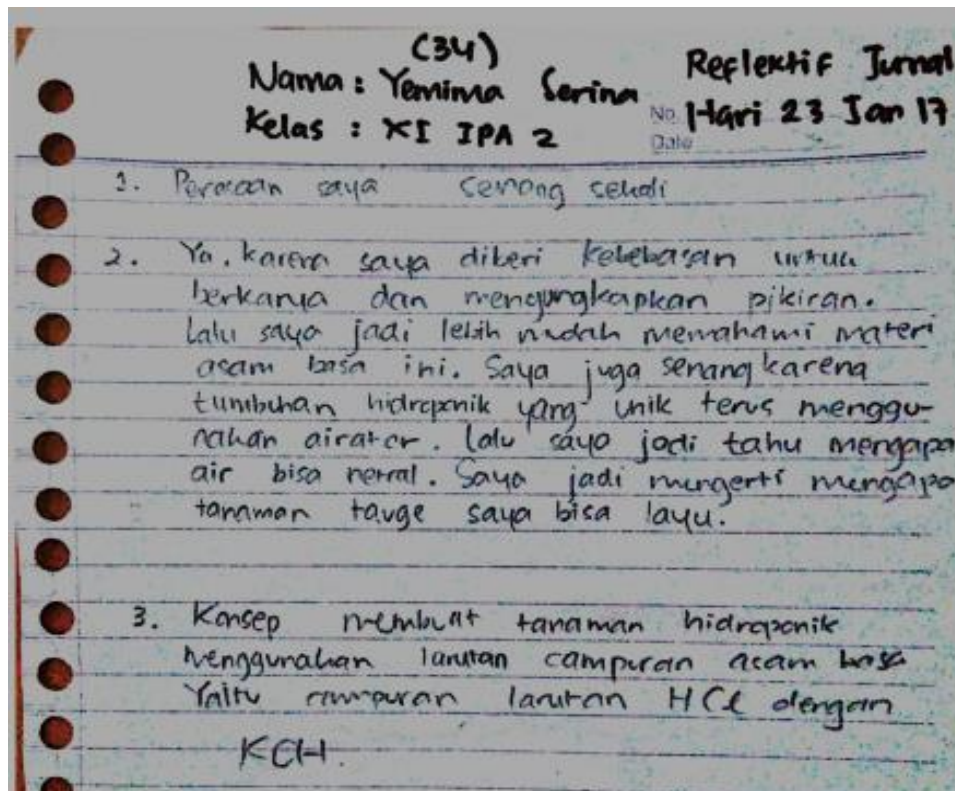 (34)
Nama : Yemima Serina
Reflektif Jurnal
Kelas : XI IPA 2
No. Hari 23 Jan 17
Date
1. Perasaan saya senang sekali
2. Ya. karena saya diberi kebebasan untuk
berkarya dan mengungkapkan pikiran.
Lalu saya jadi lebih mudah memahami materi
asam basa ini. Saya juga senang karena
tumbuhan hidroponik yang unik terus menggu-
nakan airator. Lalu saya jadi tahu mengapa
air bisa netral. Saya jadi mengerti mengapa
tanaman tauge saya bisa layu.
3. Konsep membuat tanaman hidroponik
menggunakan larutan campuran asam basa
Yaitu campuran larutan HCl dengan
KOH.